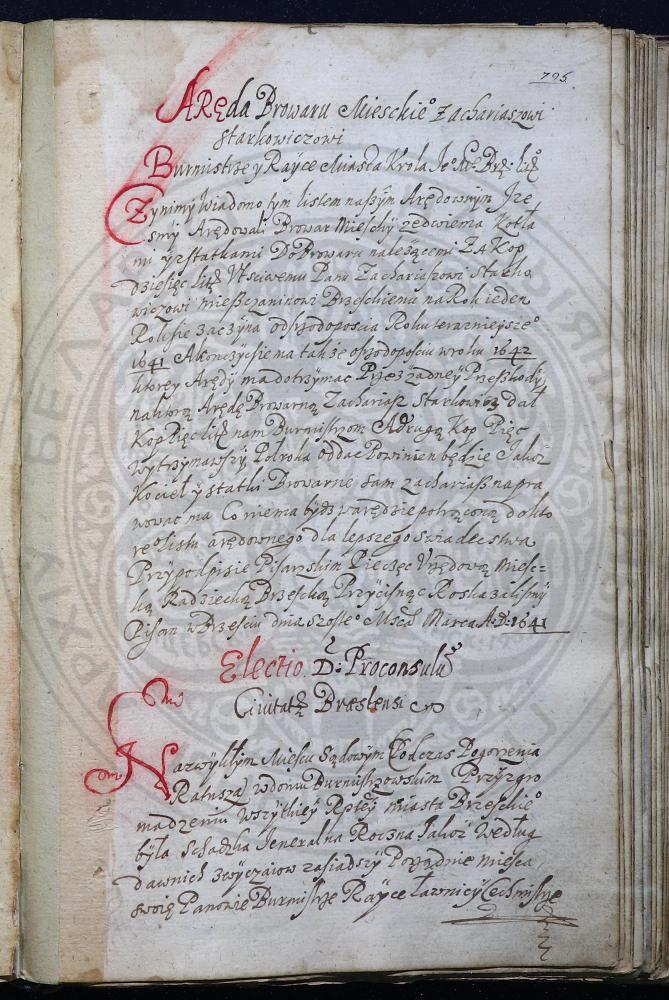 795.
ARęda Browaru Mieskie° Zachariaszowi
Starkowiczowi
Burmistrze y Rayce Miasta Krola Je° Mᶜ Brz: Lit
Czynimy Wiadomo tym listem naszym Arędownym Jze
smy Arędowali Browar Mieschy zedwiema Kotła
mi yzstatkami Do Browaru należącemi ZA Kop
dziesięc Lit Vtsciwemu Panu Zachariaszowi Starko
wiczowi mieszczaninowi Brzeskiemu na Rok ieden
Rok sie zaczyna od szodoposcia Roku terazneysze°
1641 Akonczycsie ma takze oszodoposciu wroku 1642
ktorey Arędy ma dotrzymac Przez żadney Przeszkody
naktorą Arędę Browarną Zachariasz Starkowicz dał
Kop Pięc Lit nam Burmistrzom A drugą Kop Pięc
wytrzymawszy Polroka oddac Powinien będzie Jakoż
Kocieł y statki Browarne sam Zachariasz napra
wowac ma Co niema bydz warędzie potrącono do kto
re° Listu arędownego dla lepszego swiadecstwa
Przypodpisie Pisarskim Pieczęc Vrzędową Miesc-
ką Radziecką Brzeską Przycisnąc Roskazalismy
Pisan w Brzesciu dnia szoste° Mscā Marca A: D: 1641
Electio D: Proconsulū
Ciuitatę Brestensi
Na zwykłym Miescu Sądowym Podczas Pogorzenia
Ratusza w domu Burmistrzowskim Przyzgro
madzeniu Wszytkiey Rptey miasta Brzeskie°
była Schadzka Jeneralna Roczna Jakoż Według
dawnich zwyczaiow zasiadszy Porządnie miesca
swoie Panowie Burmistrze Rayce Ławnicy Cechmistrze